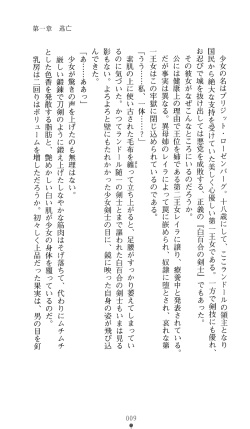 第一章 逃亡
少女の名はブリジット・ローゼンバーグ。十八歳にして、ここランドールの領主となり
国民から絶大な支持を受けていた美しく心優しい第一王女である。一方で剣技にも優れ、
お忍びで城を抜け出しては悪党を成敗する、正義の『白百合の剣士』でもあった。
その彼女がなぜこんなところにいるのか。
公には健康上の理由で王位を姉である第二王女レイラに譲り、療養中と発表されている。
だが事実は異なる。異母姉のレイラによって罠に嵌められ、奴隷に堕とされ、哀れな第
一王女はこの牢獄に閉じ込められているのである。
「うう……私、一体……?」
素肌の上に使い古された毛布を纏って立ち上がると、足腰がすっかり萎えてしまってい
るのに気づいた。かつてランドール随一の剣士とまで謳われた白百合の剣士もいまは見る
影もない。よろめきながら壁に手をついた少女剣士の目に、鏡に映った自身の姿が飛び込
んできた。
「あ……ああっ」
少女が驚きの声を上げたのも無理はない。
厳しい鍛錬で刀剣のように鍛え上げたしなやかな筋肉はそげ落ちて、代わりにムチムチ
とした色香を発散する脂肪と、艶めかしい白い肌が少女の身体を覆っているのだ。
乳房は二回りはボリュームを増しただろうか。初々しく上品だった果実は、男の目を釘
009